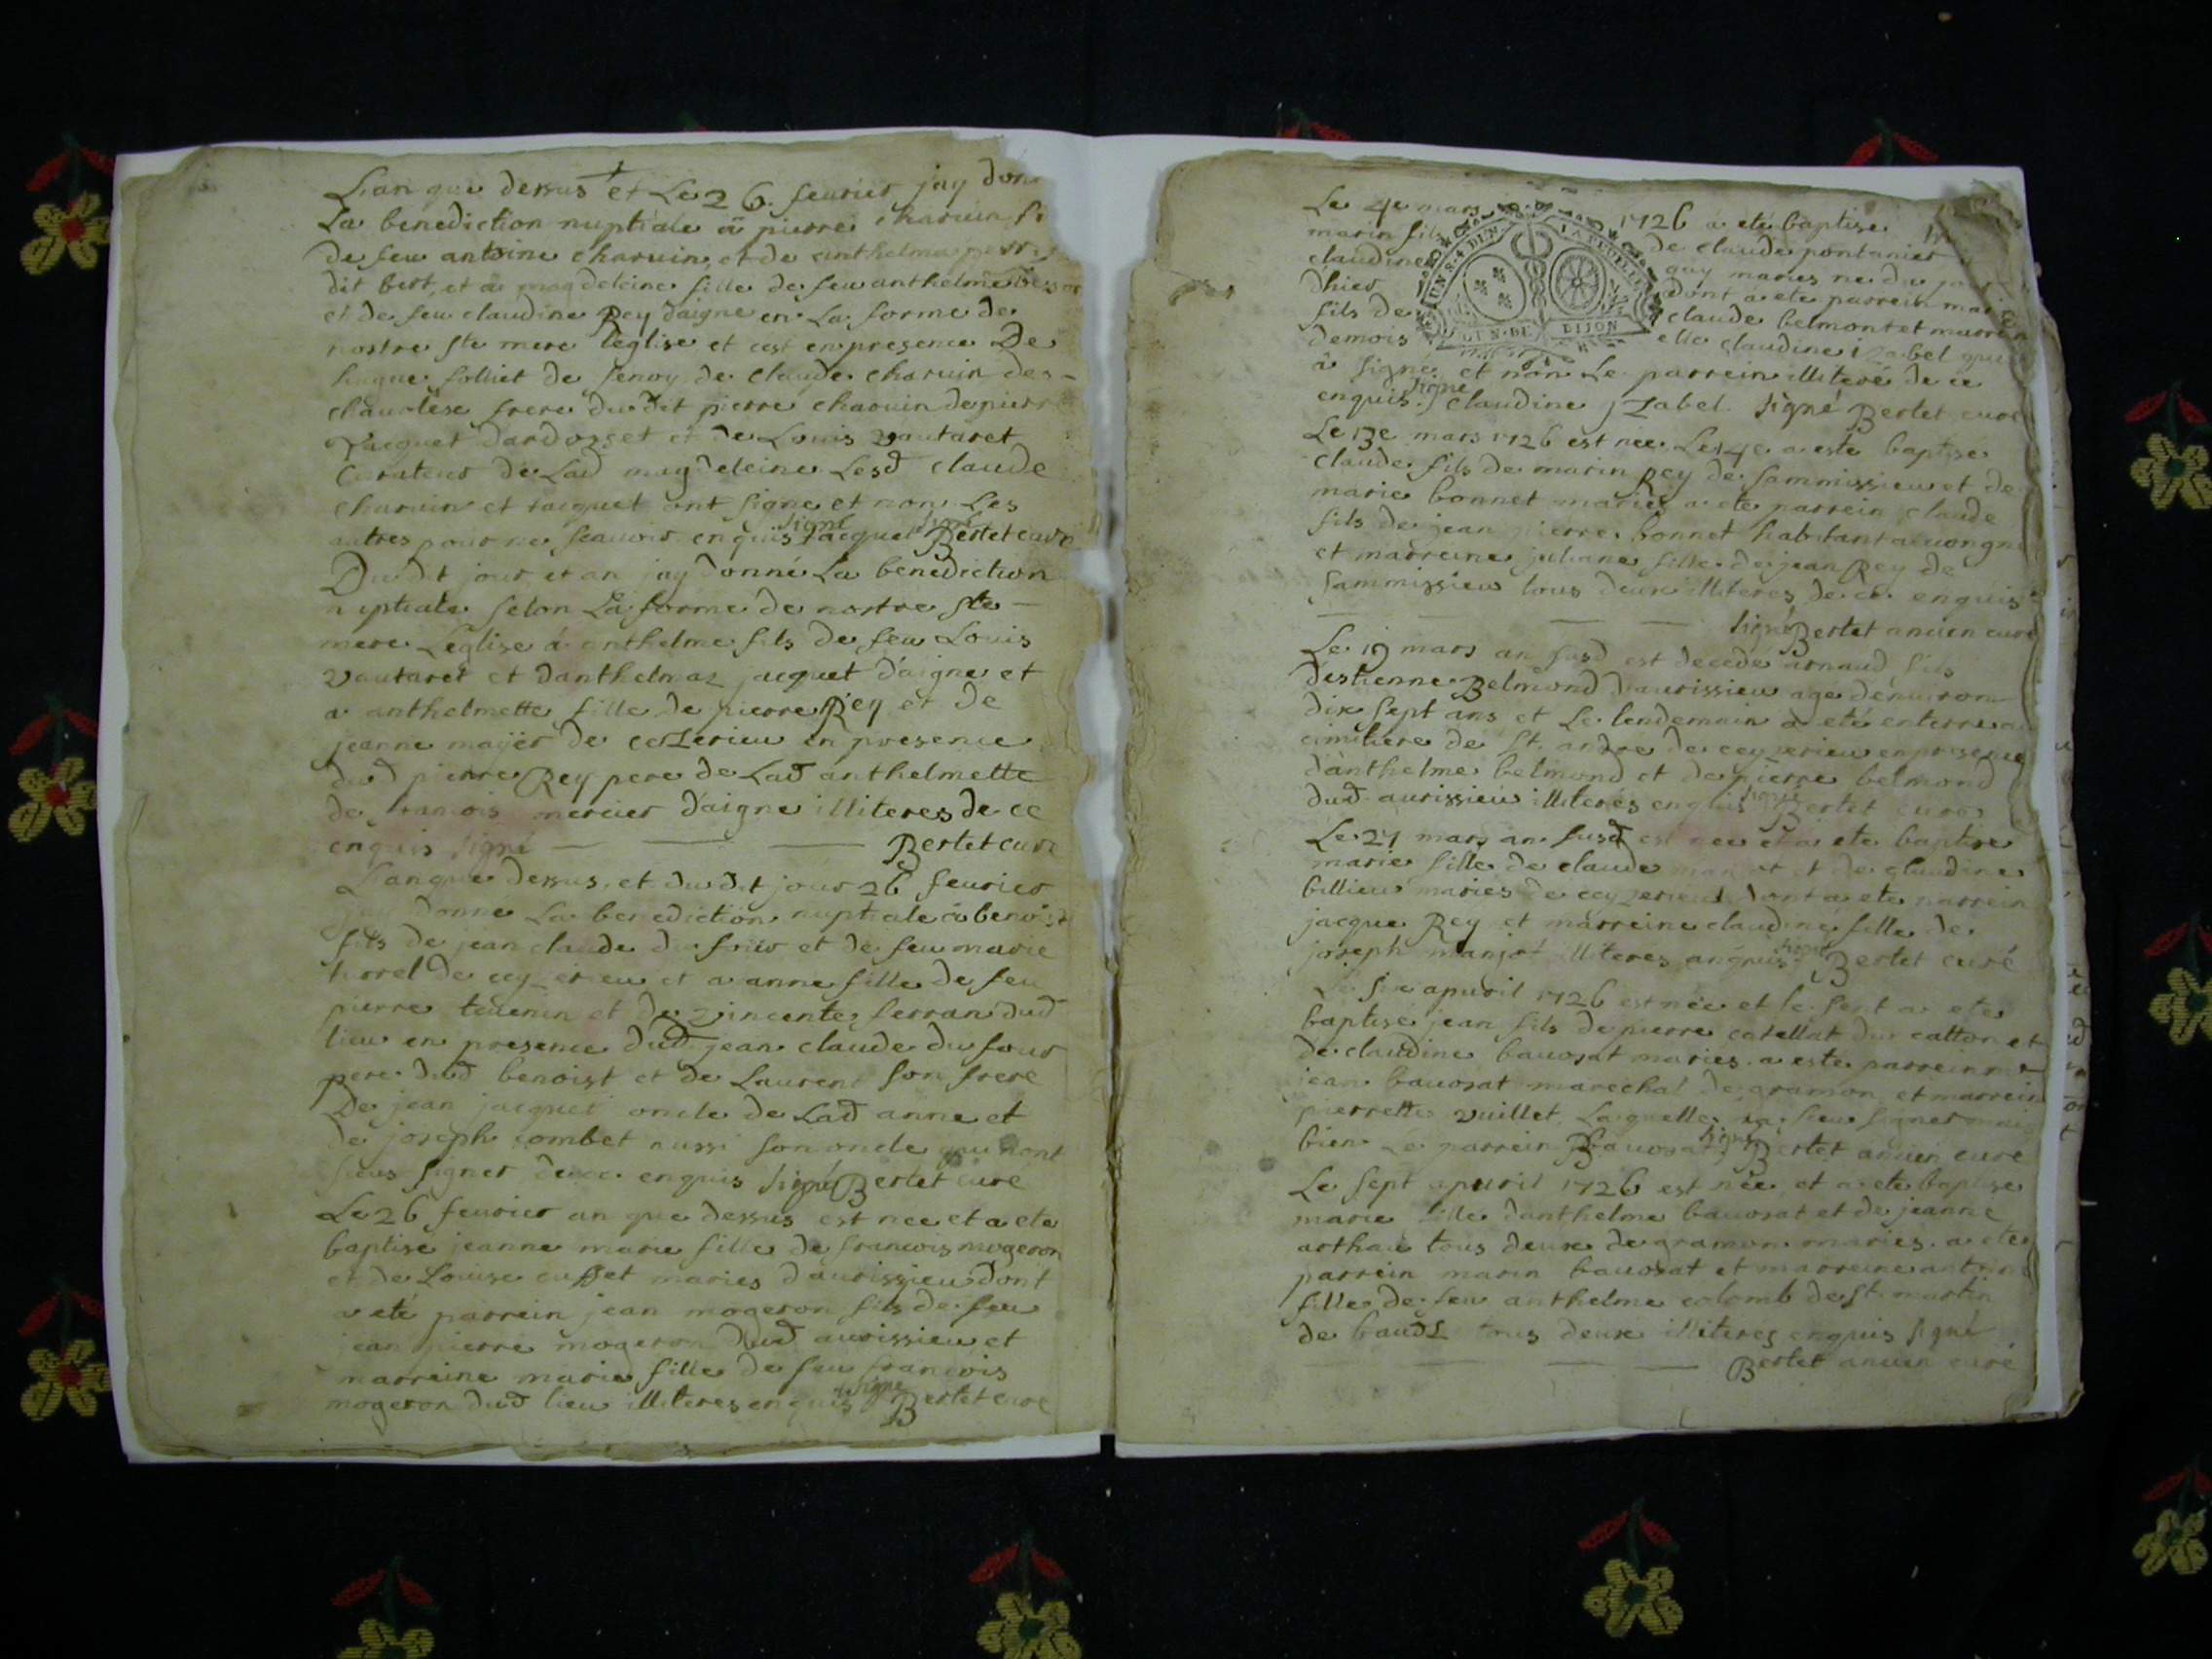 Lan que dessus et Le 26. feurier jay don
La benediction nuptiale a pierre charuin fi
de feu antoine charuin, et de anthelma
dit bert, et a magdeleine fille de feu anthelme
et de feu claudine Rey daigne en La forme de
nostre ste mere leglise et cest en presence De
hugue solliet de senoy de claude charuin des-
chauolese frere dudit pierre charuin de pierre
Jacquet dardosset et de Louis vautaret
Curateur de Lad magdeleine Lesd claude
charuin et jacquet ont signe et non Les
autres pour ne scauoir enquis signé jacquet signé Bertet curé
Dudit jour et an jay donné La benediction
nuptiale selon La forme de nostre ste
mere Leglise á anthelme fils de feu Louis
vautaret et danthelmaz jacquet daigne et
a anthelmette fille de pierre Rey et de
jeanne mayer de ceszerieu en presence
dud pierre Rey pere de Lad anthelmette
de francois mercier daigne illiteres de ce
enquis signé Bertet curé
Lan que dessus, et dudit jour 26 feurier
jay donné La benediction nuptiale á benoist
fils de jean claude du four et de feu marie
horel de ceyzerieu et a anne fille de feu
pierre teuenin et de vincente ferran dud
lieu en presence dud jean claude du four
pere dud benoist et de Laurent son frere
De jean jacquet oncle de Lad anne et
de joseph combet aussi son oncle qui nont
sceus signer de ce enquis signé Bertet curé
Le 26 feurier an que dessus est nee et a ete
baptise jeanne marie fille de francois mogeron
et de Louise cusset maries daurissieu dont
a eté parrein jean mogeron fils de feu
jean pierre mogeron dud aurissieu et
marreine marie fille de feu francois
mogeron dud lieu illiteres enquis signe Bertet curé
Le 4e mars 1726 a eté baptise
marin fils de claude pontanier
claudine guy maries ne du jour
dhier dont a ete parrein
fils de claude belmont et marreine
demois elle claudine izabel qui
UN S. 4 DEN. LA FEUILLE
GEN. DE DIJON
a signé et non Le parrein illiteré de ce
enquis. signe claudine jzabel. signé Bertet curé
Le 13e mars 1726 est nee. Le 14e a este baptise
claude fils de marin Rey de sammissieu et de
marie bonnet mariés a ete parrein claude
fils de jean pierre bonnet habitant a
et marreine juliane fille de jean Rey de
sammissieu tous deux illiteres de ce enquis
signé Bertet ancien curé
Le 19 mars an susd est decede arnaud fils
destienne Belmond daurissieu age denuiron
dix sept ans et Le lendemain a eté enterre au
cimitiere de St. andre de ceyzerieu en presence
danthelme belmond et de pierre belmond
dud aurissieu illiterés enquis signé Bertet curé
Le 27 mars an susd est nee et a ete baptise
marie fille de claude et de claudine
billieu maries de ceyzerieu dont a ete parrein
jacque Rey et marreine claudine fille de
joseph manjot illiteres enquis signé Bertet curé
Le six apuril 1726 est née et le sept a ete
baptise jean fils de pierre catellat du catton et
de claudine bauosat maries. a este parrein
jean bauosat marechal de gramon et marrein
pierrette vuillet, Laquelle na sceu signer mais
bien Le parrein Bauosat signé Bertet ancien curé
Le sept apuril 1726 est née, et a ete baptise
marie fille danthelme bauosat et de jeanne
arthau tous deux de gramon maries. a ete
parrein marin bauosat et marreine
fille de feu anthelme colomb de St. martin
de tous deux illiteres enquis signé
Bertet ancien curé